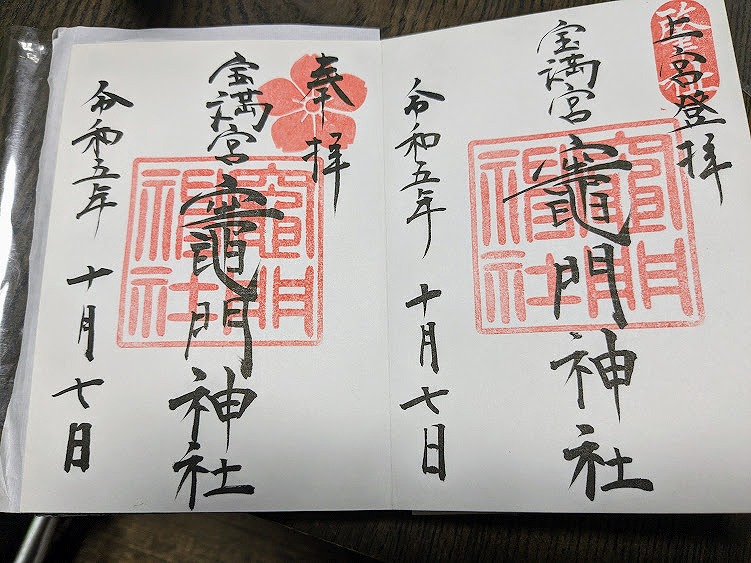 上宮登拝
宝満宮
竈門神社
竈門
神社
令和五年十月七日
奉拝
宝満宮
竈門神社
竈門
神社
令和五年十月七日